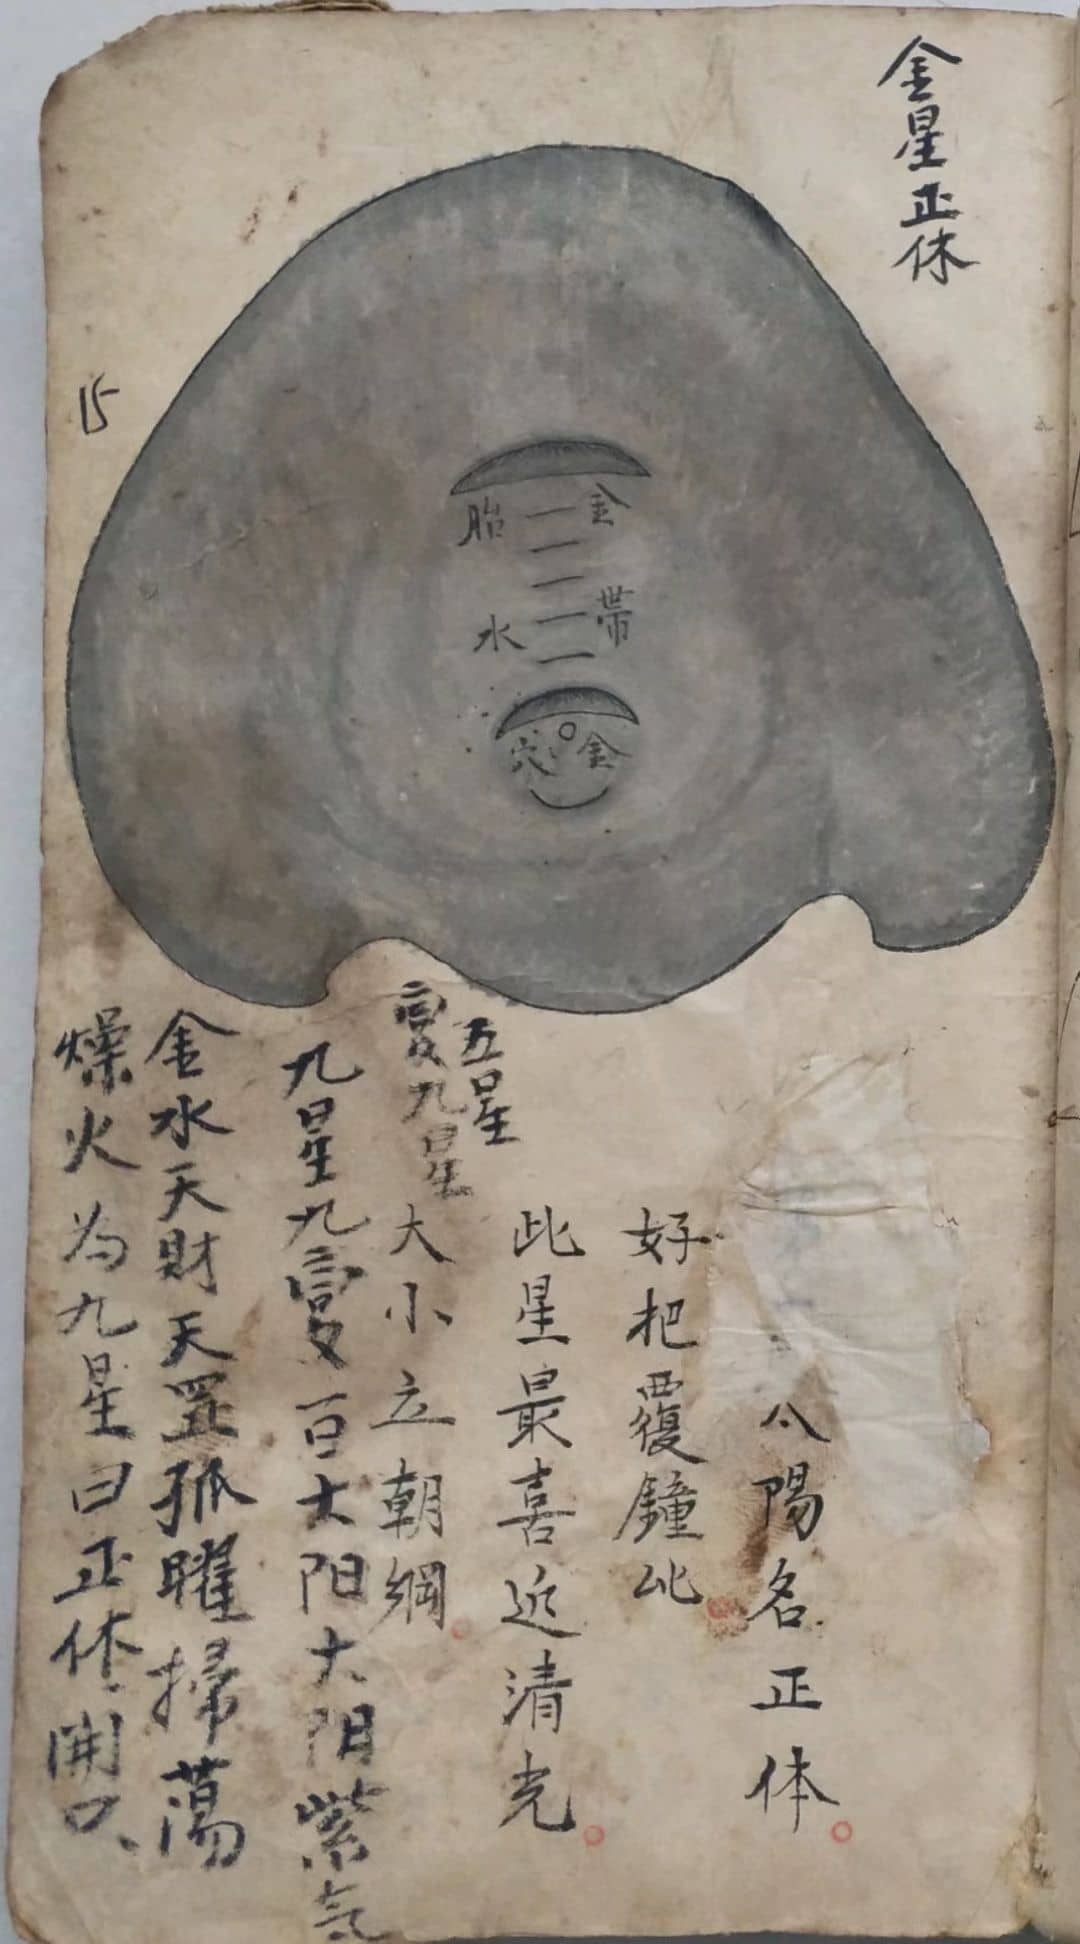 金星正体
15
金胎
帶水
金穴
陽名正体
好把覆鐘比
此星最喜近清光
大小立朝綱
五星
变九星
九星九变百太阳太阴紫气
金水天財天罡孤曜掃蕩
燥火为九星曰正体開口